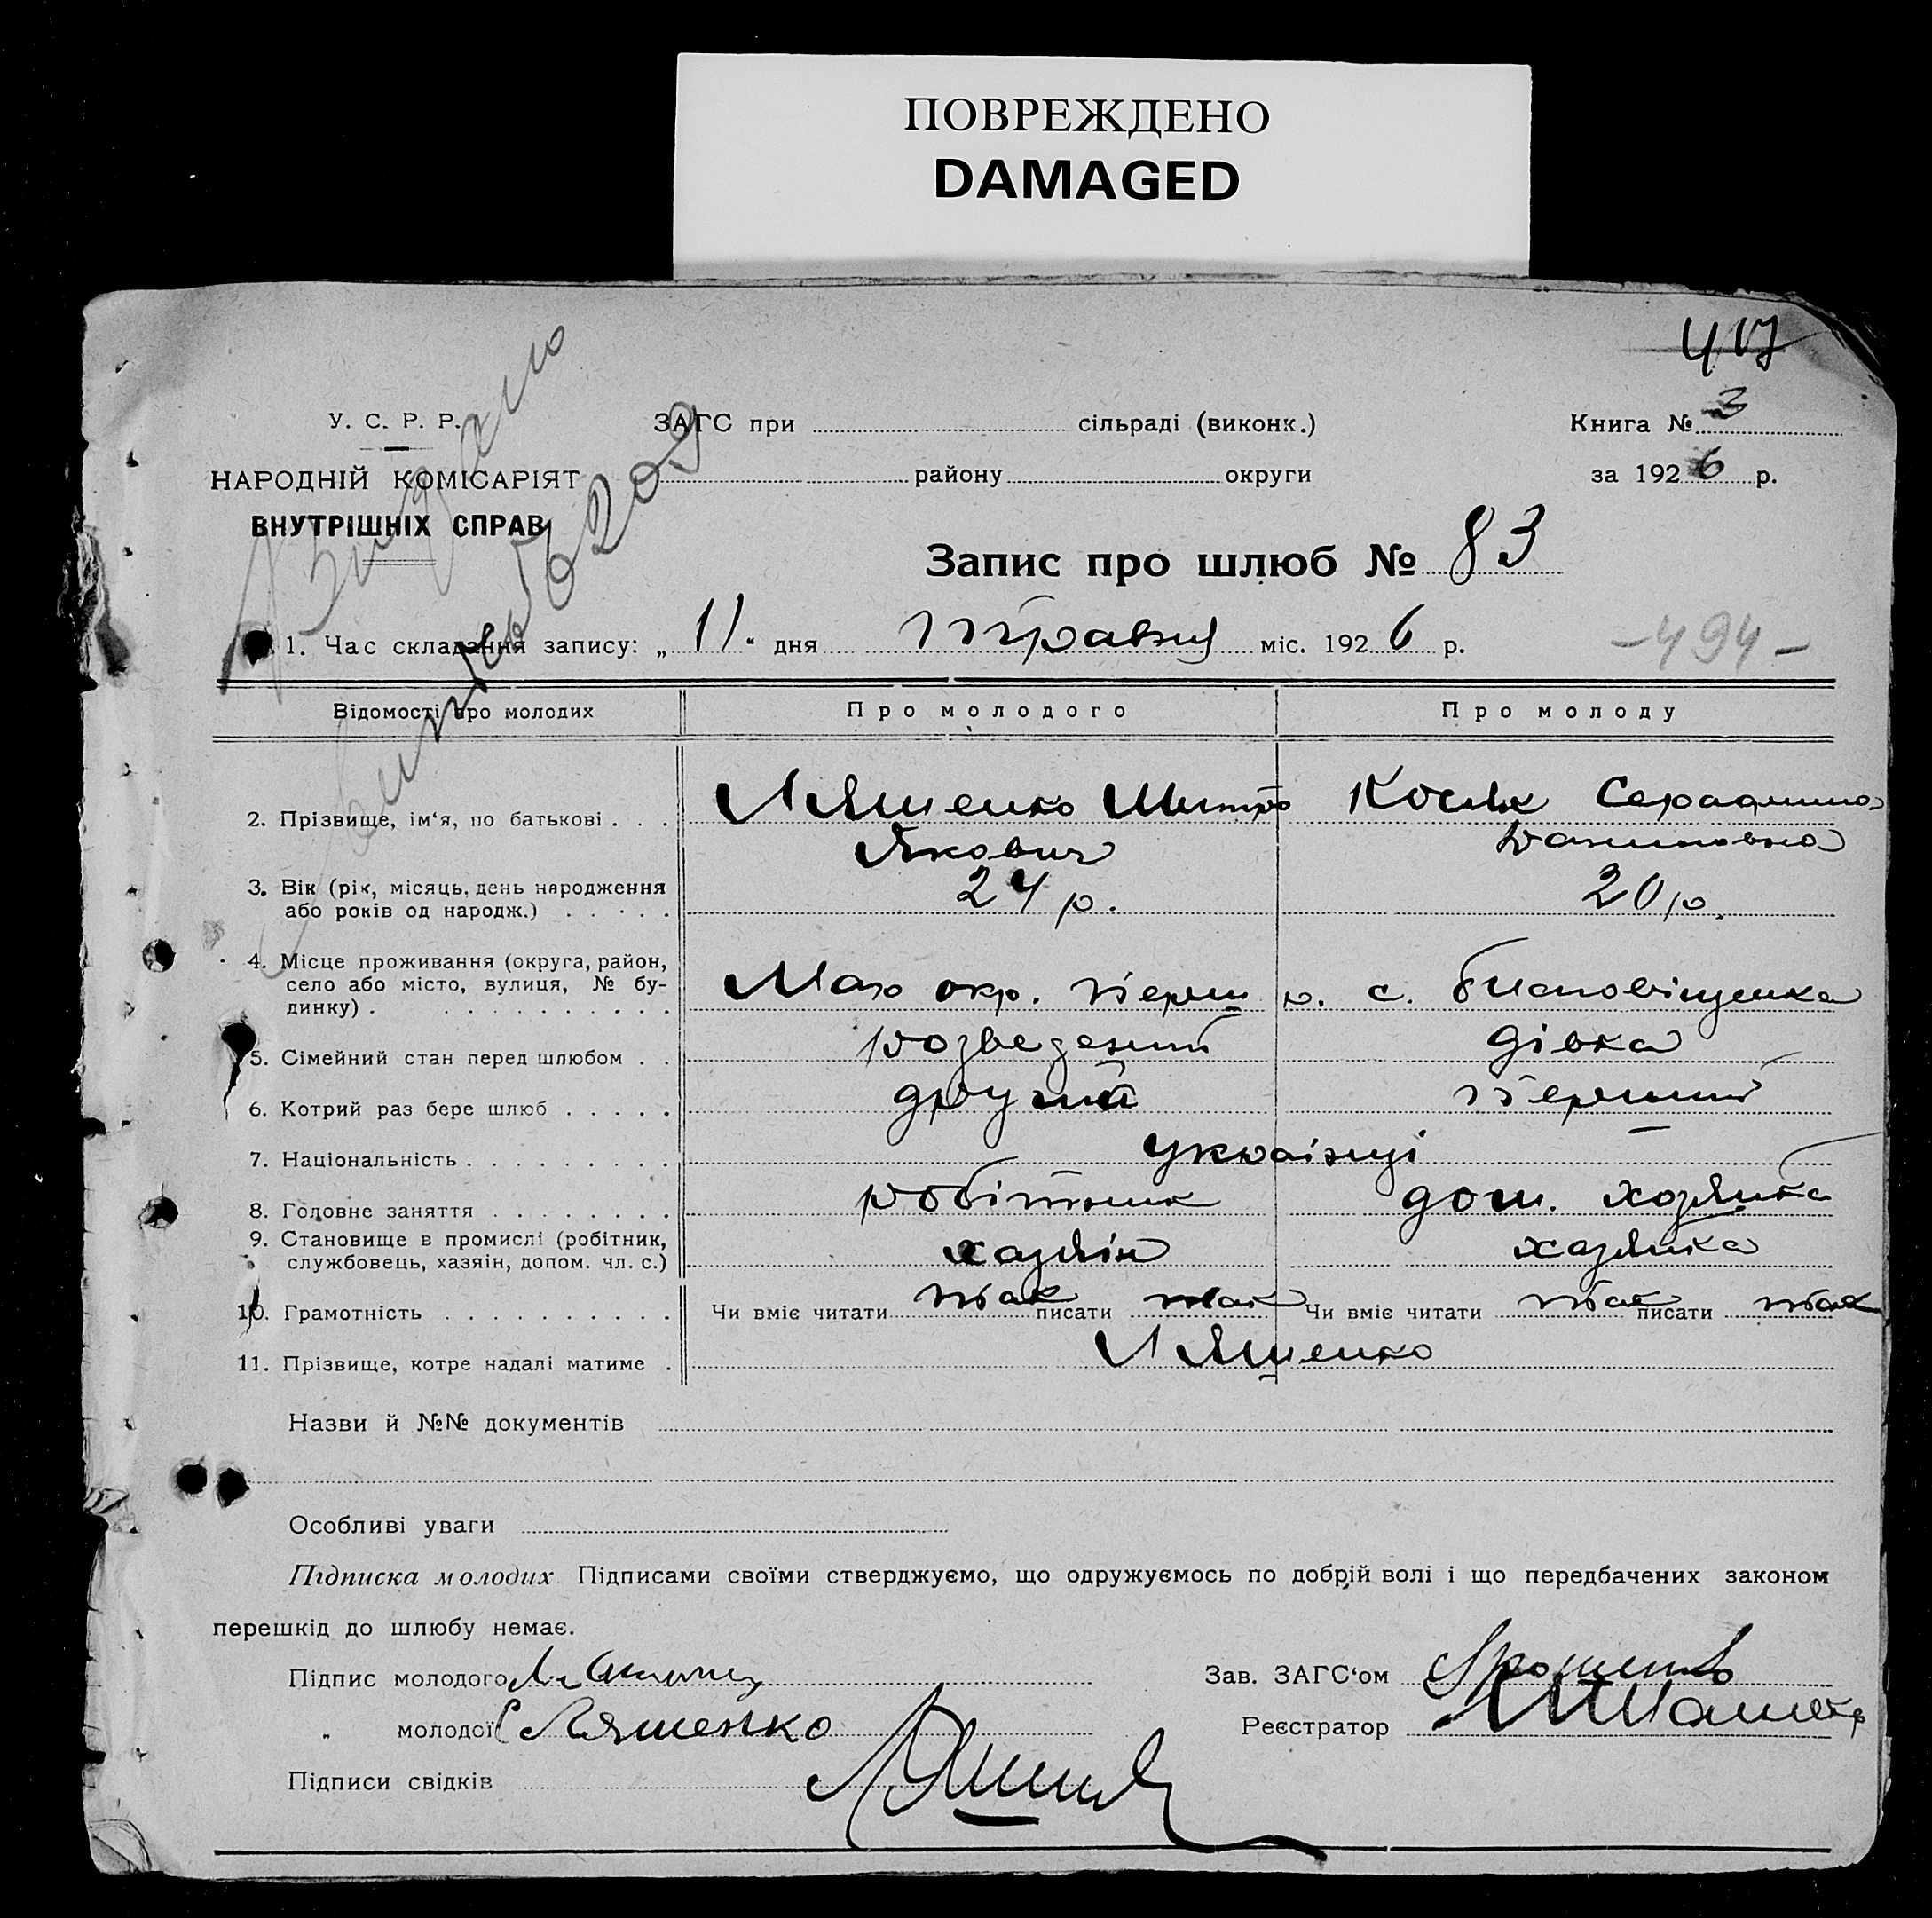 ПОВРЕЖДЕНО
DAMAGED
417
У. С. Р. Р.
НАРОДНІЙ КОМІСАРІЯТ
ВНУТРІШНІХ СПРАВ
Видано
6209
ЗАГС при сільраді (виконк.)
району округи
Книга № 3
за 1926 р.
Запис про шлюб № 83
1. Час складання запису: „ 11 “ дня травня міс. 1926 р.
-494-
Відомості про молодих Про молодого Про молоду
2. Прізвище, ім‘я, по батькові . . . Ляшенко Митро Косяк Серафима
Якович Даниловна
3. Вік (рік, місяць, день народження
або років од народж.) . . . . . 24 р. 20 р.
4. Місце проживання (округа, район,
село або місто, вулиця, № бу-
динку) . . . . . . . . . . . Мар окр. Перш р. с. Благовіщенка
5. Сімейний стан перед шлюбом . . розведений дівка
6. Котрий раз бере шлюб . . . . . другий перший
7. Національність . . . . . . . . . українці
8. Головне заняття . . . . . . . . робітник дом. хозяйка
9. Становище в промислі (робітник,
службовець, хазяїн, допом. чл. с.) хазяін хазяйка
10. Грамотність . . . . . . . . . . Чи вміє читати так писати так Чи вміє читати так писати так
11. Прізвище, котре надалі матиме . Ляшенко
Назви й №№ документів
Особливі уваги
Підписка молодих Підписами своїми стверджуємо, що одружуємось по добрій волі і що передбачених законом
перешкід до шлюбу немає.
Підпис молодого Зав. ЗАГС‘ом
„ молодої С Ляшенко Реєстратор
Підписи свідків